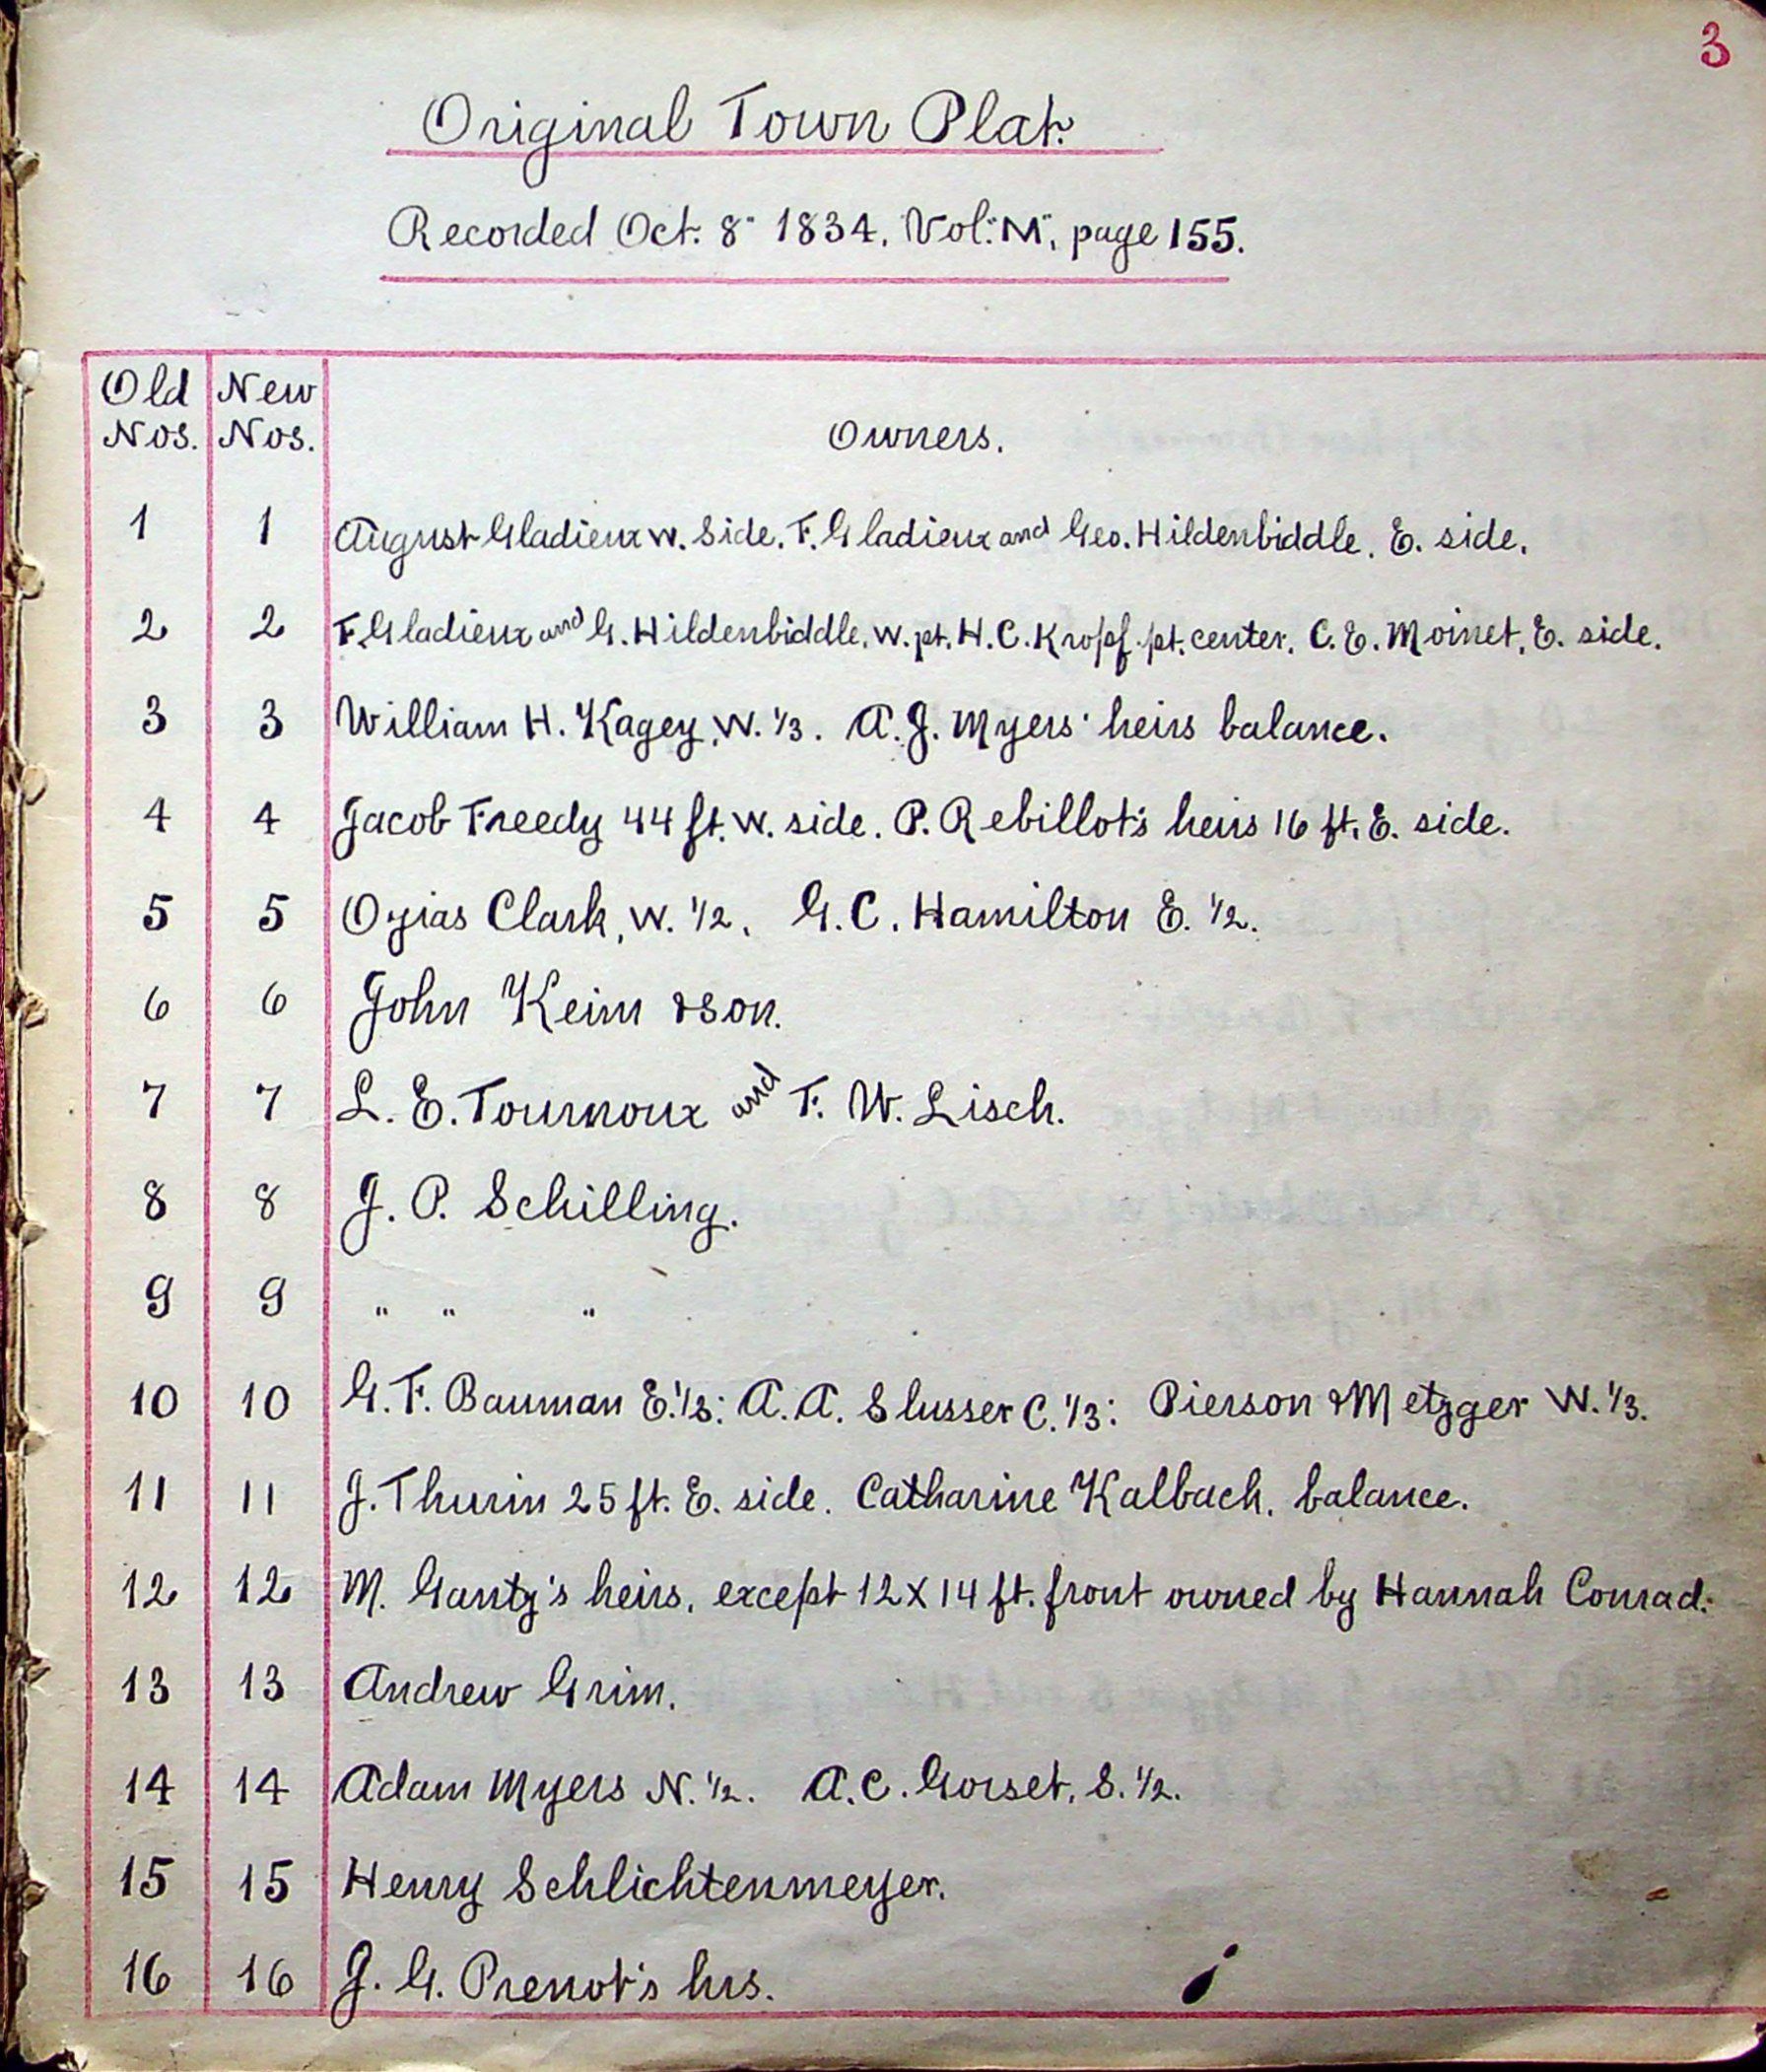 3
Original Town Plat.
Recorded Oct. 8" 1834, Vol. "M", page 155.
Old New
Nos. Nos. Owners.
1 1 August Gladieux W. Side. F. Gladieux and Geo. Hildenbiddle. E. side.
2 2 F. Gladieux and G. Hildenbiddle. W. pt. H. C. Kropf. pt. center. C. E. Moinet, E. side.
3 3 William H. Kagey, W. 1/3. A. J. Myers' heirs balance.
4 4 Jacob Freedy 44 ft. W. side. P. Rebillot's heirs 16 ft. E. side.
5 5 Ozias Clark, W. 1/2. G. C. Hamilton E. 1/2.
6 6 John Keim & Son.
7 7 L. E. Tournoux and F. W. Lisch.
8 8 J. P. Schilling.
9 9 " " "
10 10 G. F. Bauman E. 1/3: A. A. Slusser C. 1/3: Pierson & Metzger W. 1/3.
11 11 J. Thurin 25 ft. E. side. Catharine Kalbach, balance.
12 12 M. Gantz's heirs, except 12 X 14 ft. front owned by Hannah Conrad.
13 13 Andrew Grim.
14 14 Adam Myers N. 1/2. A. C. Gorset, S. 1/2.
15 15 Henry Schlichtenmeyer.
16 16 J. G. Prenot's hrs.